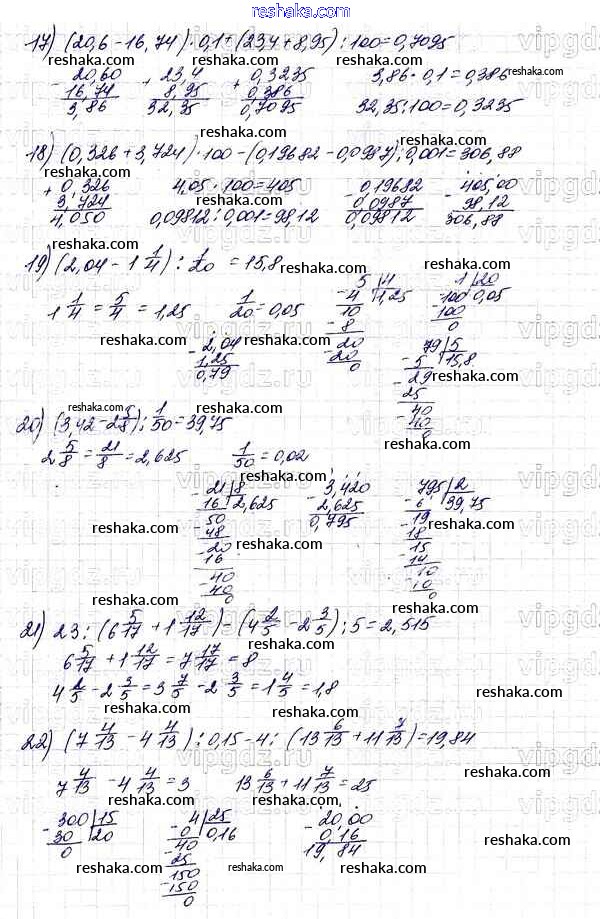 reshaka.com
17) (20,6 - 16,74) · 0,1 + (23,4 + 8,95) : 100 = 0,7095
- 20,60 + 23,4 + 0,3235 3,86 · 0,1 = 0,386
16,74 8,95 0,386
3,86 32,35 0,7095 32,35 : 100 = 0,3235
18) (0,326 + 3,724) · 100 - (0,19682 - 0,0987) : 0,001 = 306,88
+ 0,326 4,05 · 100 = 405 - 0,19682 - 405,00
3,724 0,0987 98,12
4,050 0,09812 : 0,001 = 98,12 0,09812 306,88
19) (2,04 - 1 1/4) : 1/20 = 15,8
1 1/4 = 5/4 = 1,25 1/20 = 0,05
5 | 4
- 4 1,25
10
- 8
- 20
20
0
1 | 20
- 100 0,05
100
0
- 2,04
1,25
0,79
79 | 5
- 5 15,8
- 29
25
- 40
40
0
20) (3,42 - 2 5/8) : 1/50 = 39,75
2 5/8 = 21/8 = 2,625 1/50 = 0,02
- 21 | 8
16 2,625
- 50
48
- 20
16
- 40
40
0
- 3,420
2,625
0,795
795 | 2
- 6 39,75
- 19
18
- 15
14
- 10
10
0
21) 23 : (6 5/17 + 1 12/17) - (4 2/5 - 2 3/5) : 5 = 2,515
6 5/17 + 1 12/17 = 7 17/17 = 8
4 2/5 - 2 3/5 = 3 7/5 - 2 3/5 = 1 4/5 = 1,8
22) (7 4/13 - 4 4/13) : 0,15 - 4 : (13 6/13 + 11 7/13) = 19,84
7 4/13 - 4 4/13 = 3 13 6/13 + 11 7/13 = 25
- 300 | 15
30 20
0
4 | 25
- 0 0,16
- 40
25
- 150
150
0
- 20,00
0,16
19,84
reshaka.com
vipgdz.ru